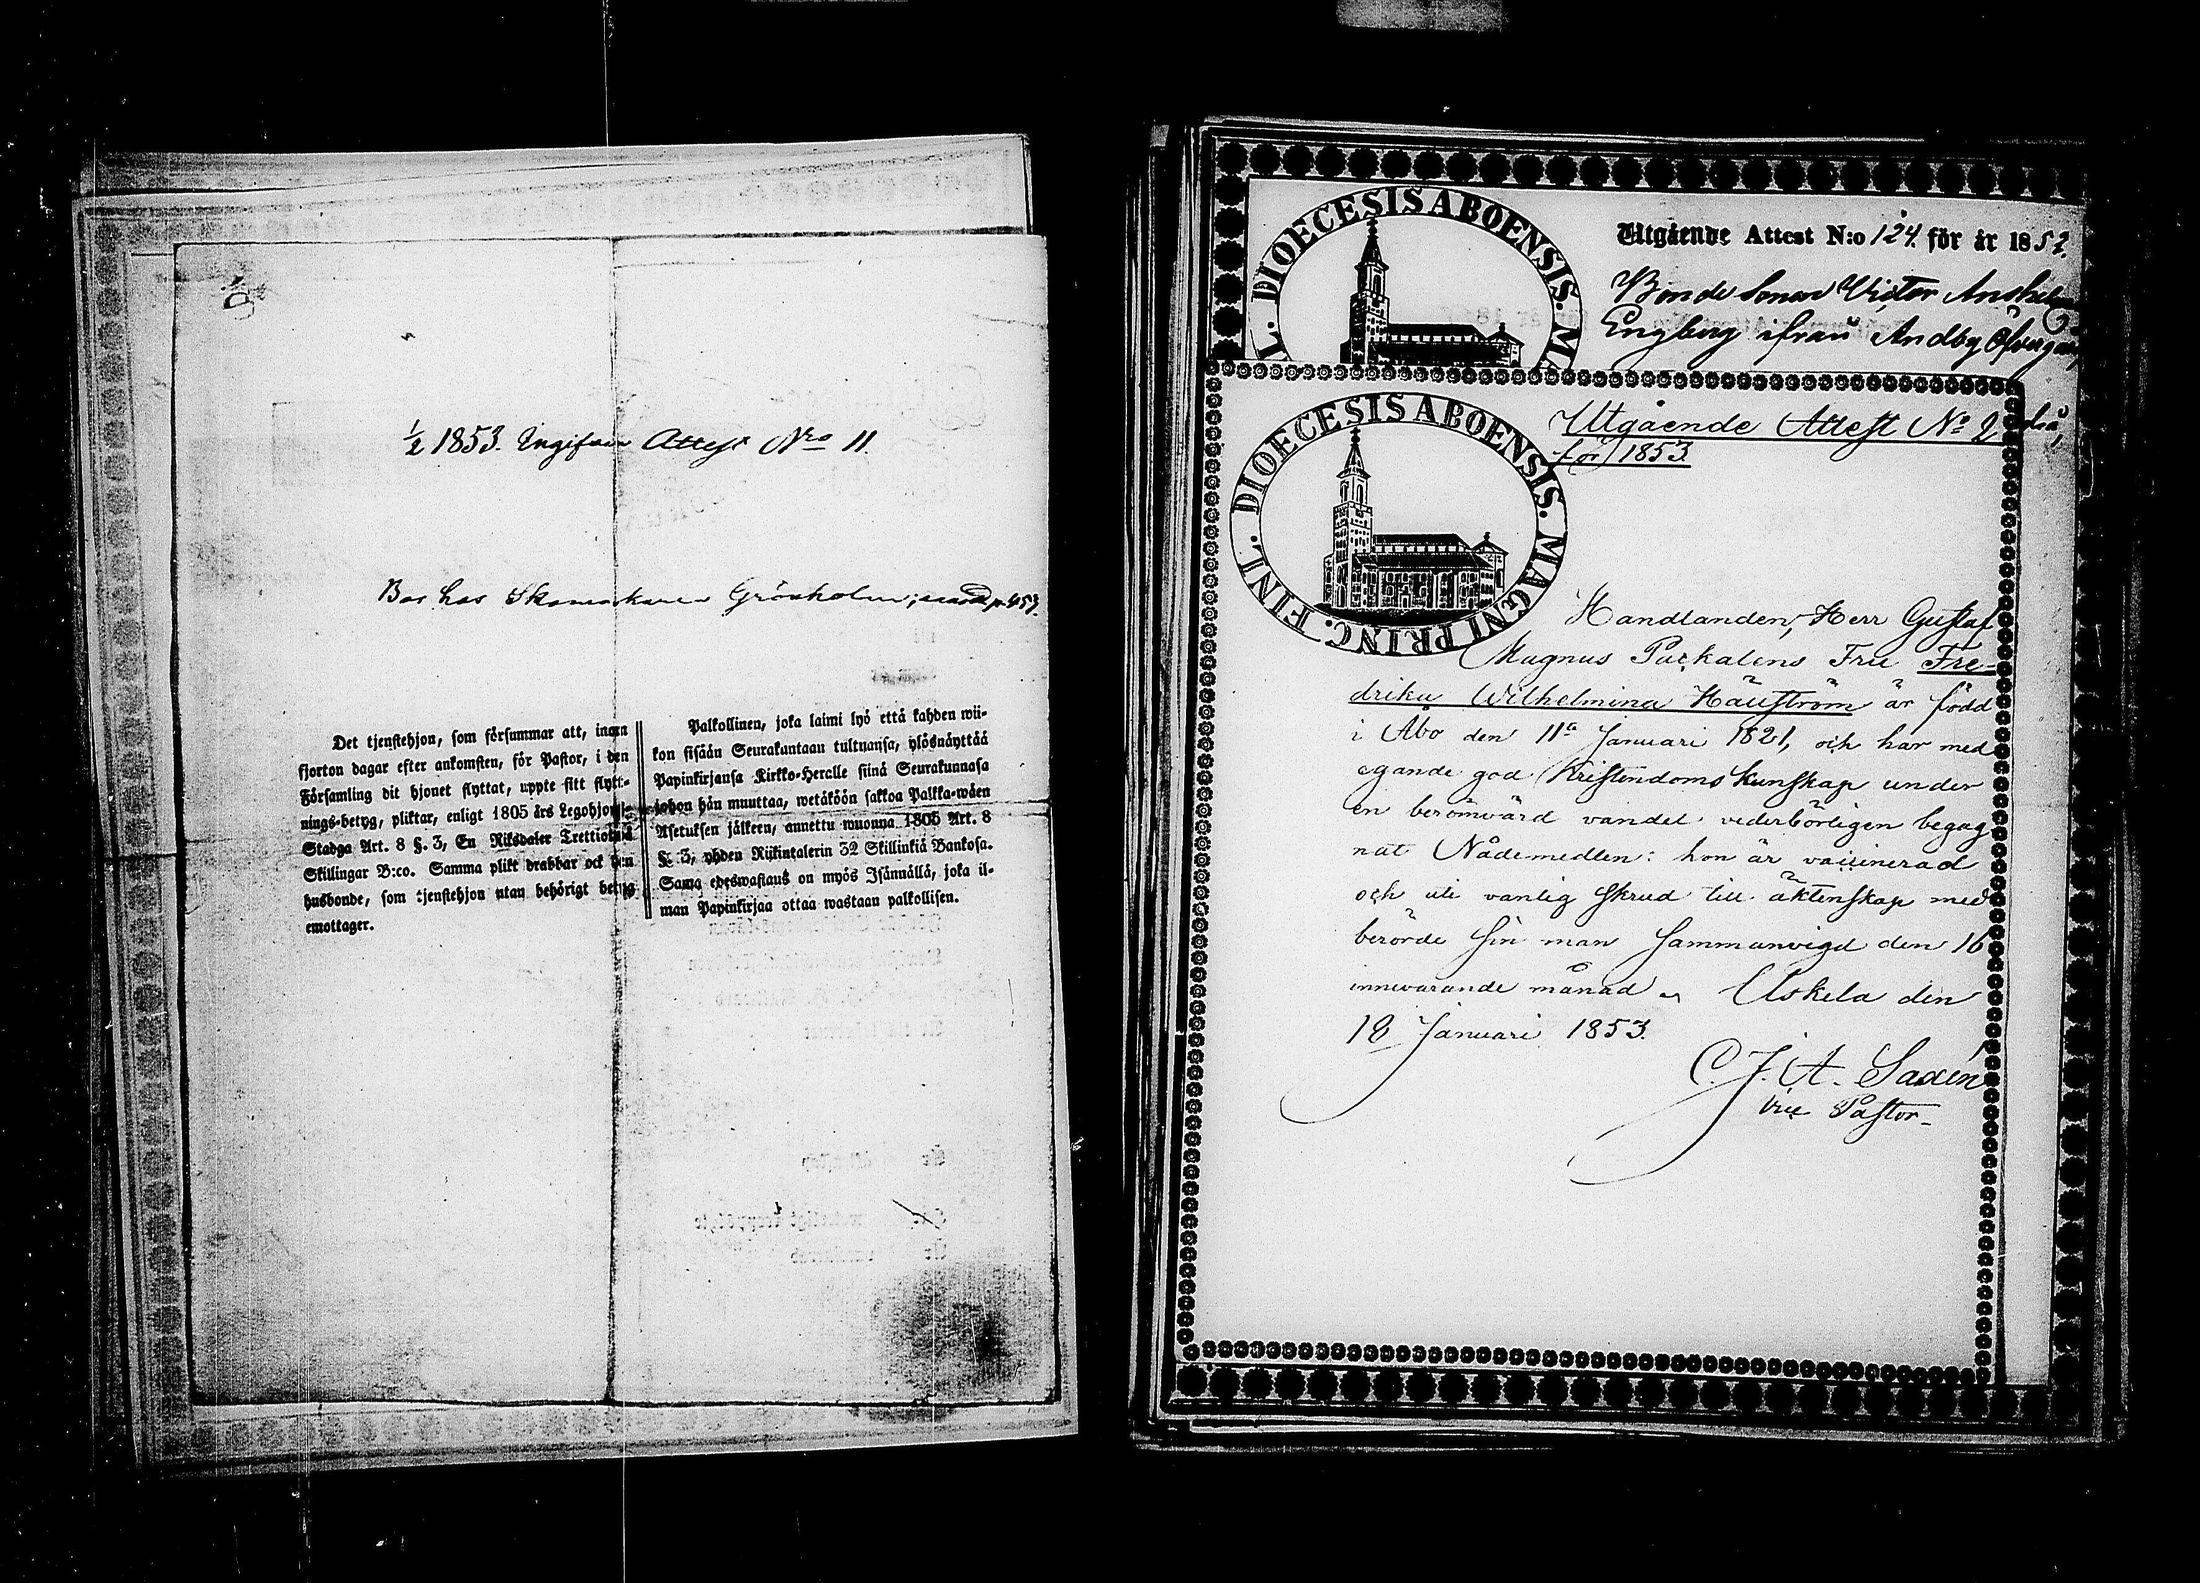 1/2 1853. Ingifven Attest Nro 11.
Bor hos Skomakaren Grönholm;
Det tjenstehjon, som försummar att, inom
fjorton dagar efter ankomsten, för Pastor, i den
Församling dit hjonet flyttat, uppte sitt flytt-
nings-betyg, pliktar, enligt 1805 års Legohjons-
Stadga Art. 8 §. 3, En Riksdaler Trettiotvå
Skillingar B:co. Samma plikt drabbar ock den
husbonde, som tjenstehjon utan behörigt betyg
emottager.
Palkollinen, joka laimi lyö että kahden wii-
kon sisään Seurakuntaan tultuansa, ylösnäyttää
Papinkirjansa Kirkko-Heralle siinä Seurakunnasa
johon hän muuttaa, wetäköön sakkoa Palkka-wäen
Asetuksen jälkeen, annettu wuonna 1805 Art. 8
§. 3, yhden Rijkintalerin 32 Skillinkiä Bankosa.
Sama edeswastaus on myös Isännällä, joka il-
man Papinkirjaa ottaa wastaan palkollisen.
L. DIOECESIS ABOENSIS. MA
Utgående Attest N:o 124. för år 1852.
Bonde Sonen Victor Anshelm
Engberg ifrån Andby Öfvergård
DIOECESIS ABOENSIS. MAGNI PRINC. FINL.
Utgående Attest No 2
för 1853
Handlanden, Herr Gustaf
Magnus Purkalens Fru Fre-
drika Wilhelmina Häuström är född
i Åbo den 11a Januari 1821, och har med
egande god Kristendoms kunskap under
en berömvärd vandel vederbörligen begag
nat Nådemedlen: hon är vaccinerad
och uti vanlig skrud till äktenskap med
berörde sin man sammanvigd den 16
innevarande månad. Uskela den
18 Januari 1853.
C. J. A. Saxén
Vice Pastor